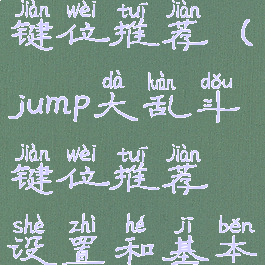 jiàn wèi tuī jiàn
键位推荐（
dà luàn dǒu
jump大乱斗
jiàn wèi tuī jiàn
键位推荐
shè zhì hé jī běn
设置和基本